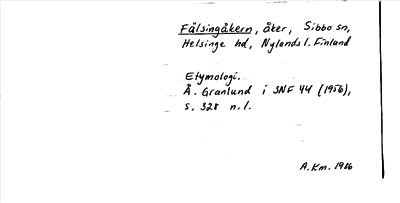 Fälsingåkern, åker, Sibbo sn,
Helsinge hd, Nylands l. Finland
Etymologi.
Å. Granlund i SNF 44 (1956),
s. 328 n.l.
A.Km. 1986